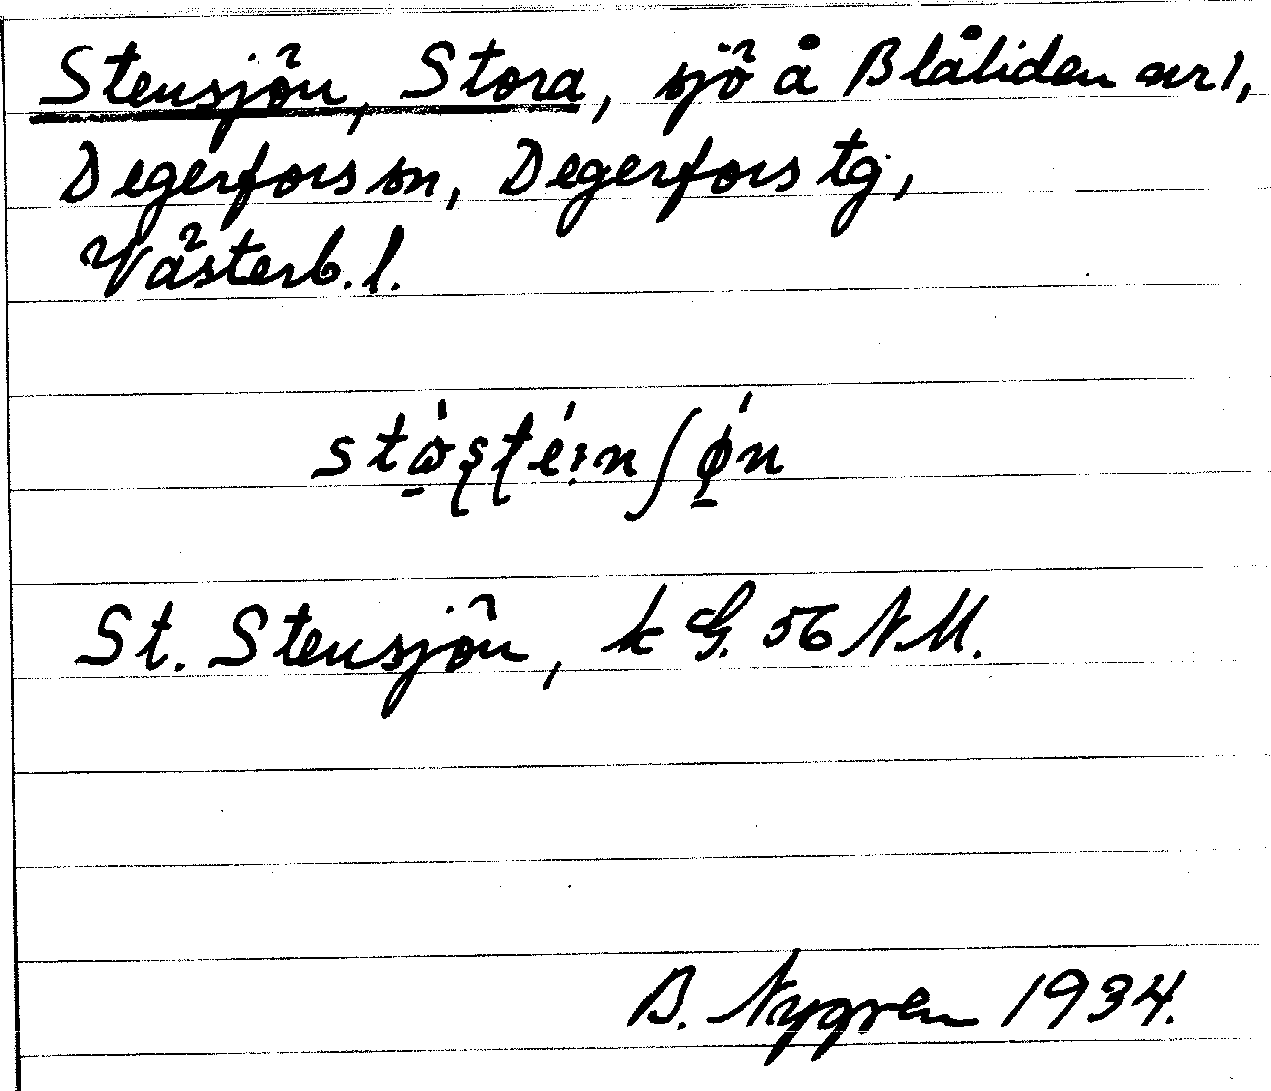 Stensjön, Stora, sjö å Blåliden nr 1,
Degerfors sn, Degerfors tg,
Västerb. l.
St. Stensjön, k G. 56 NM.
B. Nygren 1934.